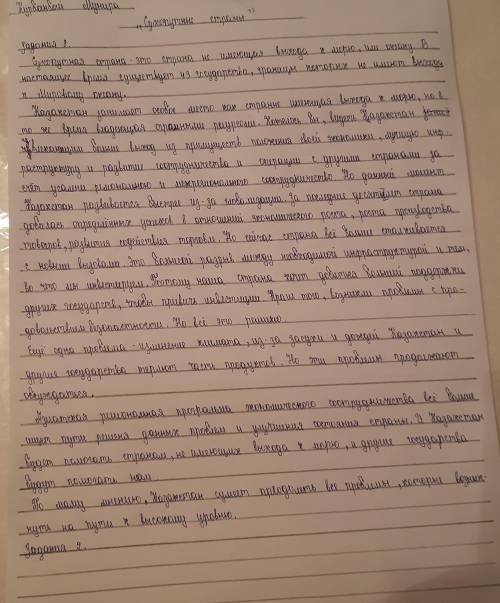 Курбанбай Мунира
"Сухопутные страны"
Задания 1.
Сухопутная страна - это страна не имеющая выхода к морю, или океану. В
настоящее время существует 42 государства, границы которых не имеют выхода
к Мировому океану.
Казахстан занимает особое место как страна имеющая выхода к морю, но в
то же время владеющая странными ресурсами. Хотелось бы, видеть Казахстан
выход из примуществ положения своей экономики, лучшую инф-
раструктуру и развитие соотрудничества и операции с другими странами за
счёт усилий регионального и межрегионального соотрудничества. На данный момент
Казахстан развивается быстрее из-за глобализации. За последние десят лет страна
добилась определённых успехов в отношений экономического роста, роста производства
товаров, развития содействия торговли. Но сейчас страна всё больше сталкивается
с новыми вызовами. Это большой разрыв между необходимой инфраструктурой и тем,
во что мы инвестируем. Поэтому наша страна хочет добиться большей поддержки
других государств, чтобы привлечь инвестиции. Кроме того, возникли проблемы с про-
довольствием безопасности. Но всё это решимо.
Ещё одна проблема - изменение климата, из-за засухи и дождей Казахстан и
другие государства теряют часть продуктов. Но эти проблемы продолжают
обсуждаться.
Азиатская региональная программа экономического соотрудничества всё больше
ищет пути решена данных проблем и улучшения состояния страны. И Казахстан
будет помогать странам, не имеющих выхода к морю, и другие государства
будут помогать нам
По моему мнению, Казахстан сумеет преодолеть все проблемы, которые возник-
нуть на пути к высокому уровню.
Задания 2.